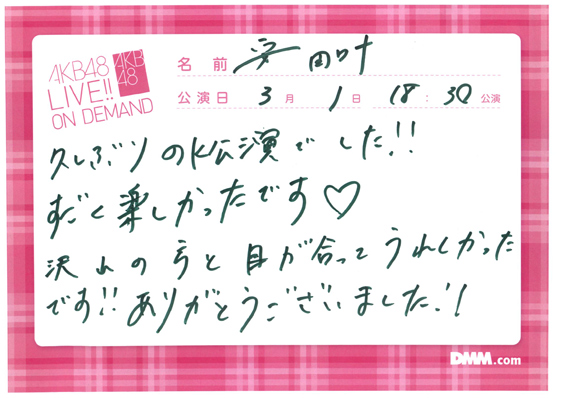 AKB48
LIVE!!
ON DEMAND
AKB
48
名前 安田叶
公演日 3月1日 18:30公演
久しぶりのK公演でした!!
すごく楽しかったです♡
沢山の方と目が合ってうれしかった
です!!ありがとうございました!!
DMM.com